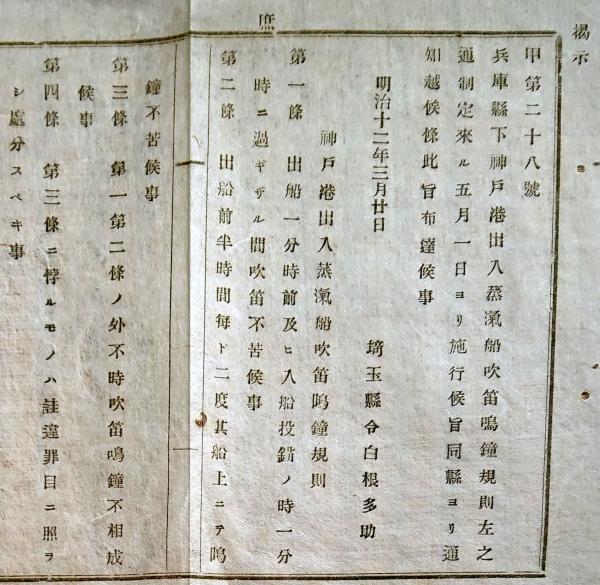 掲示
庶
甲第二十八號
兵庫縣下神戸港出入蒸氣船吹笛鳴鐘規則左之
通制定來ル五月一日ヨリ施行候旨同縣ヨリ通
知越候條此旨布達候事
明治十二年三月廿日
埼玉縣令白根多助
神戸港出入蒸氣船吹笛鳴鐘規則
第一條 出船一分時前及ヒ入船投錨ノ時一分
時ニ過ギザル間吹笛不苦候事
第二條 出船前半時間毎ド二度其船上ニテ鳴
鐘不苦候事
第三條 第一第二條ノ外不時吹笛鳴鐘不相成
候事
第四條 第三條ニ悖ルモノハ詿違罪目ニ照ラ
シ處分スベキ事